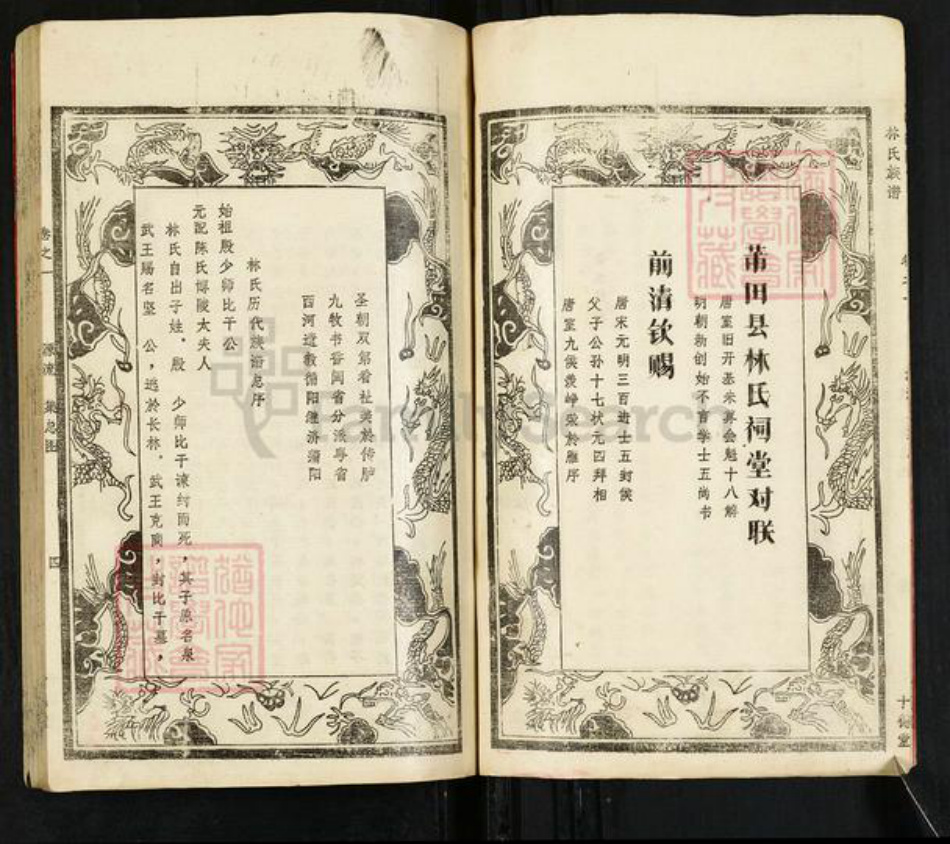 林氏族谱
莆田县林氏祠堂对联
唐室旧开基来算会魁十八解
明朝勅创始不言学士五尚书
前清钦赐
唐宋元明三百进士五封侯
父子公孙十七状元四拜相
唐室九侯
十德堂
圣朝双
九牧书香闽省分派粤省
西河道教
林氏历代族谱总序
始祖殷少师比干公
元配陈氏博陵大夫人
林氏自出子姓。殷 少师比干谏纣而死，其子原名泉
武王赐名坚 公，逃於长林。武王克商，封比干墓，
卷之一
源流
四
FamilySearch